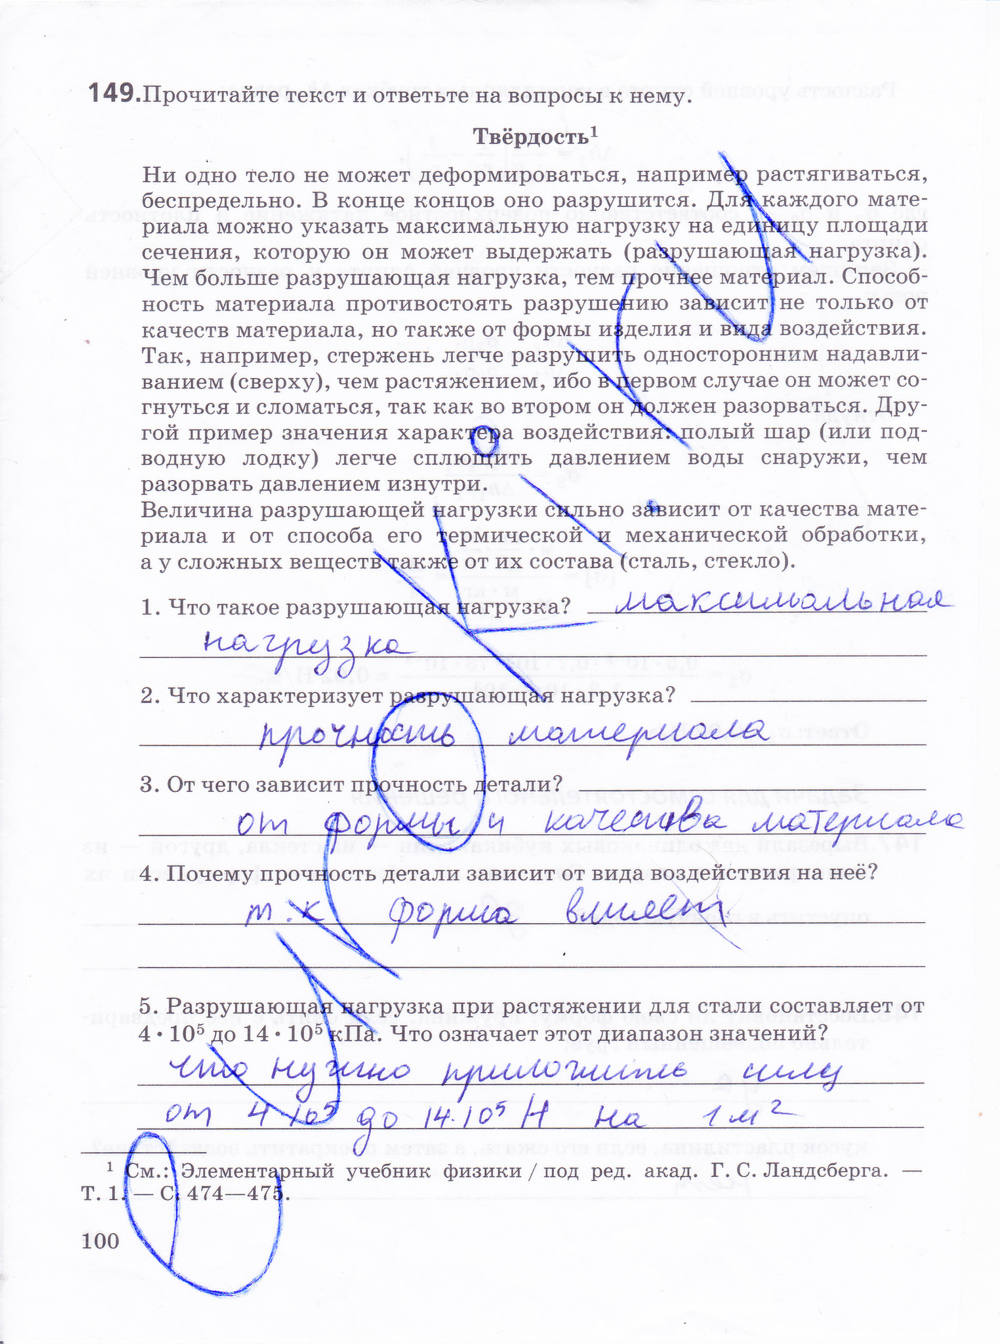 149. Прочитайте текст и ответьте на вопросы к нему.
Твёрдость¹
Ни одно тело не может деформироваться, например растягиваться,
беспредельно. В конце концов оно разрушится. Для каждого мате-
риала можно указать максимальную нагрузку на единицу площади
сечения, которую он может выдержать (разрушающая нагрузка).
Чем больше разрушающая нагрузка, тем прочнее материал. Способ-
ность материала противостоять разрушению зависит не только от
качеств материала, но также от формы изделия и вида воздействия.
Так, например, стержень легче разрушить односторонним надавли-
ванием (сверху), чем растяжением, ибо в первом случае он может со-
гнуться и сломаться, так как во втором он должен разорваться. Дру-
гой пример значения характера воздействия: полый шар (или под-
водную лодку) легче сплющить давлением воды снаружи, чем
разорвать давлением изнутри.
Величина разрушающей нагрузки сильно зависит от качества мате-
риала и от способа его термической и механической обработки,
а у сложных веществ также от их состава (сталь, стекло).
1. Что такое разрушающая нагрузка? максимальная
нагрузка
2. Что характеризует разрушающая нагрузка?
прочность материала
3. От чего зависит прочность детали?
от формы и качества материала
4. Почему прочность детали зависит от вида воздействия на неё?
т.к форма влияет
5. Разрушающая нагрузка при растяжении для стали составляет от
4 · 10⁵ до 14 · 10⁵ кПа. Что означает этот диапазон значений?
что нужно приложить силу
от 4·10⁵ до 14·10⁵ Н на 1м²
¹ См.: Элементарный учебник физики / под ред. акад. Г. С. Ландсберга. —
Т. 1. — С. 474—475.
100